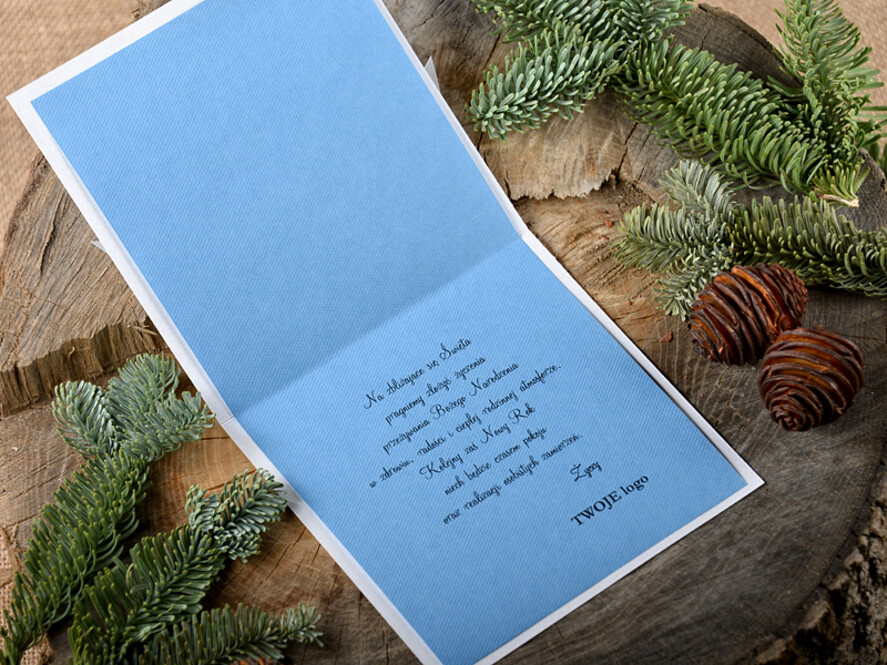 Na zbliżające się Święta
pragniemy złożyć życzenia
przeżywania Bożego Narodzenia
w zdrowiu, radości i ciepłej rodzinnej atmosferze.
Kolejny zaś Nowy Rok
niech będzie czasem pokoju
oraz realizacji osobistych zamierzeń.
Życzy
TWOJE logo